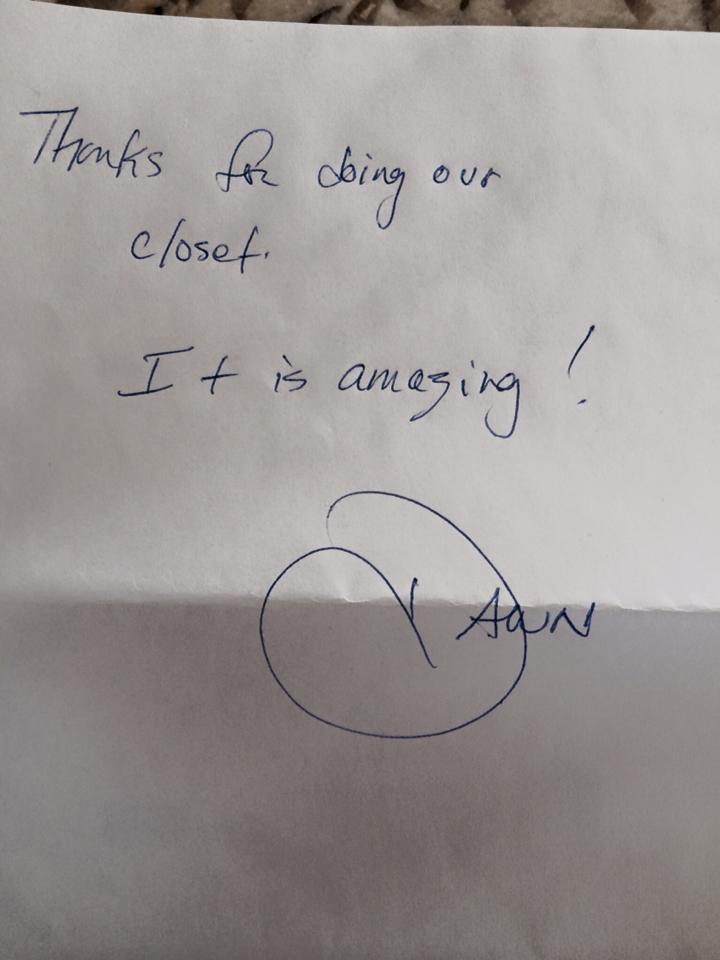 Thanks for doing our
closet.
It is amazing!
DAWN